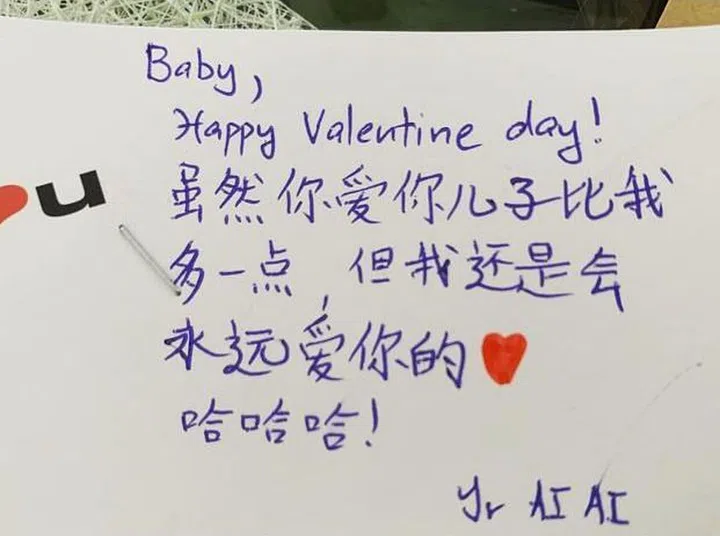 Baby,
Happy Valentine day!
u
虽然你爱你儿子比我
多一点,但我还是会
永远爱你的
哈哈哈!
Yr AI AI